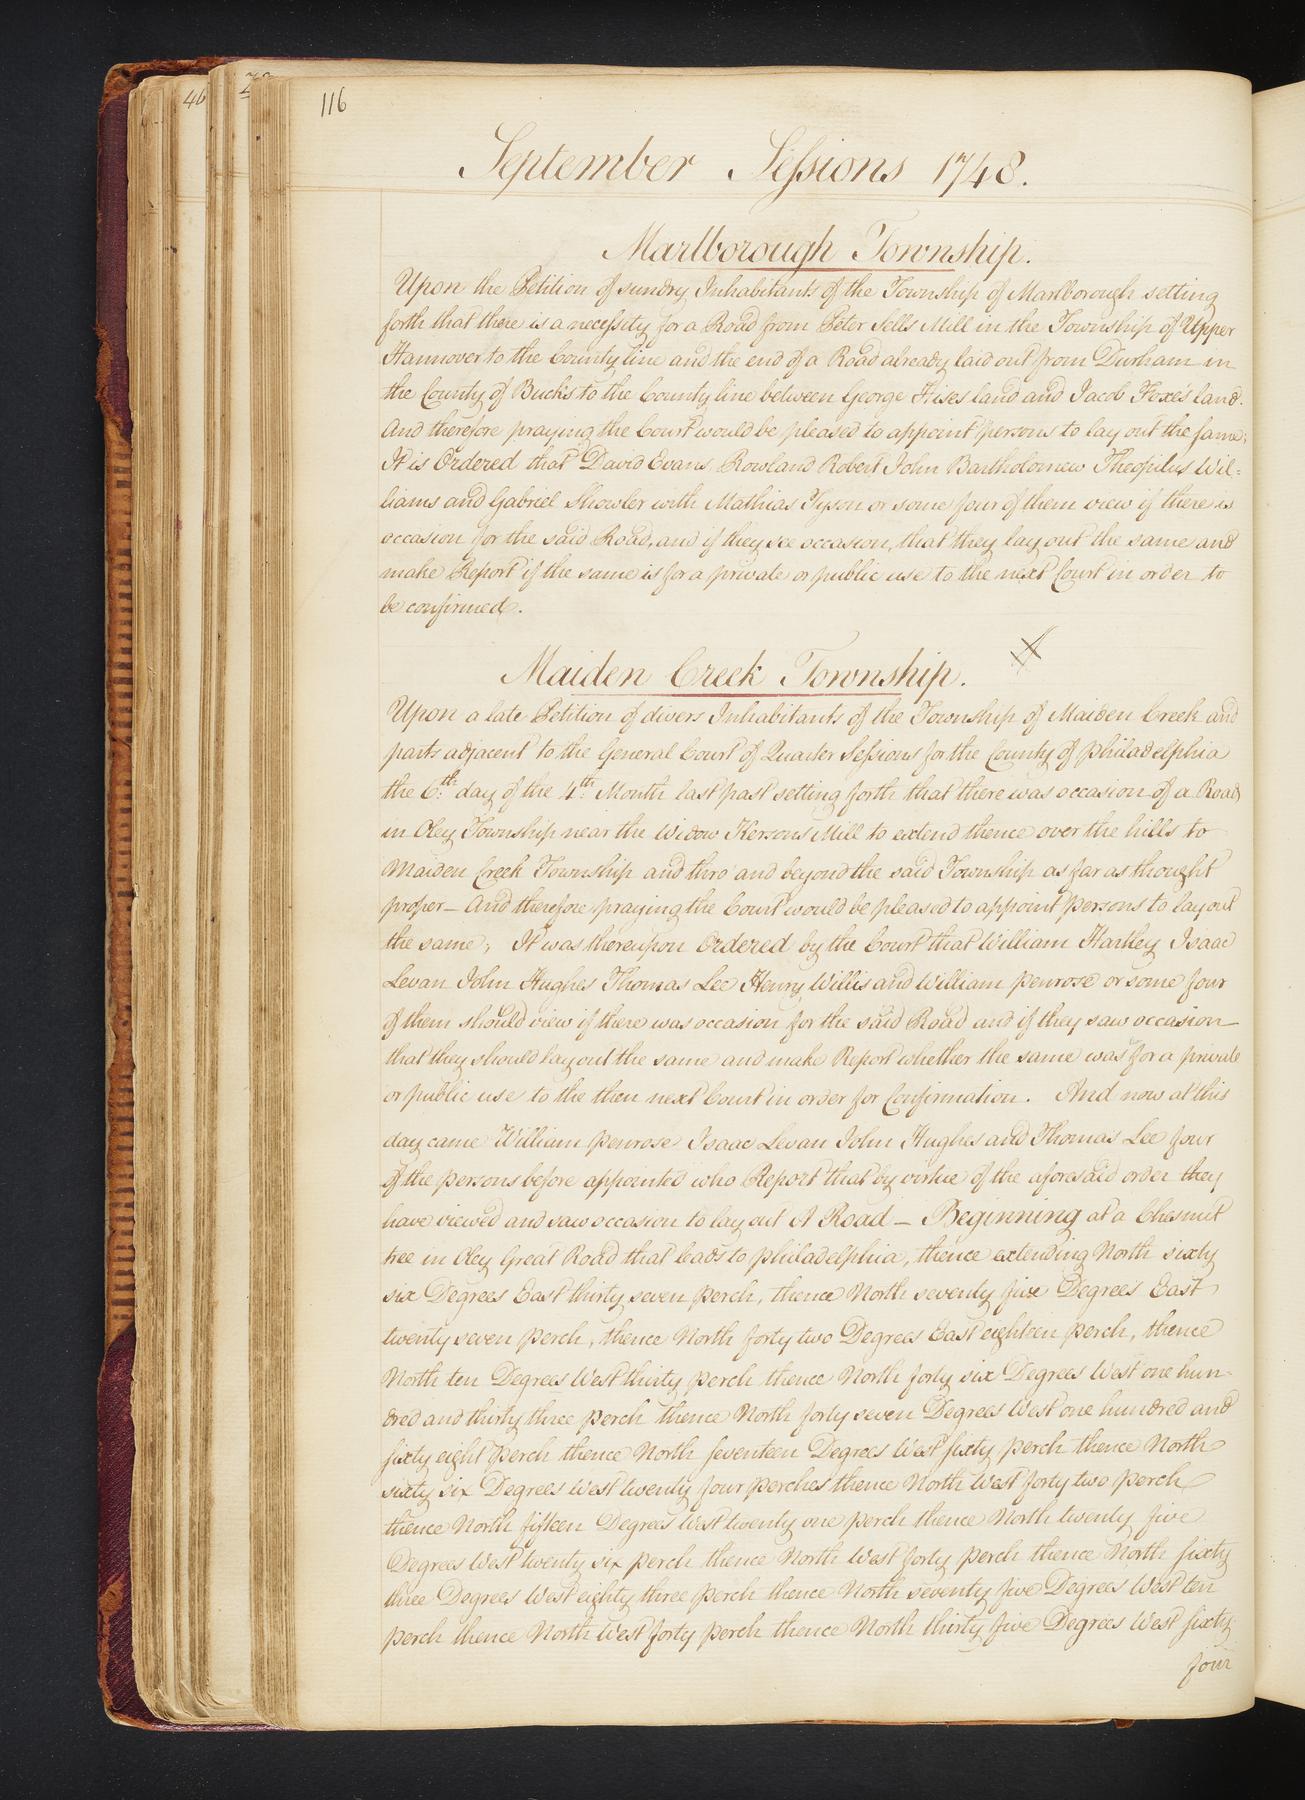 46
116
September Sessions 1748.
Marlborough Township.
Upon the Petition of sundry Inhabitants of the Township of Marlborough setting
forth that there is a necessity for a Road from Peter Sells Mill in the Township of Upper
Hannover to the County line and the end of a Road already laid out from Durham in
the County of Bucks to the County line between George Hises land and Jacob Foxes land.
And therefore praying the Court would be pleased to appoint persons to lay out the same;
It is Ordered that David Evans Rowland Robert John Bartholomew Theopilus Wil=
liams and Gabriel Showler with Mathias Tyson or some four of them view if there is
occasion for the said Road, and if they see occasion, that they lay out the same and
make Report if the same is for a private or public use to the next Court in order to
be confirmed.
Maiden Creek Township.
Upon a late Petition of divers Inhabitants of the Township of Maiden Creek and
parts adjacent to the General Court of Quarter Sessions for the County of philadelphia
the 6th. day of the 4th. Month last past setting forth that there was occasion of a Road
in Oley Township near the Widow Kersons Mill to extend thence over the hills to
Maiden Creek Township and thro' and beyond the said Township as far as thought
proper — And therefore praying the Court would be pleased to appoint persons to lay out
the same; It was thereupon Ordered by the Court that William Hartley Isaac
Levan John Hughes Thomas Lee Henry Willis and William penrose or some four
of them should view if there was occasion for the said Road and if they saw occasion
that they should lay out the same and make Report whether the same was for a private
or public use to the then next Court in order for Confirmation. And now at this
day came William penrose Isaac Levan John Hughes and Thomas Lee four
of the persons before appointed who Report that by virtue of the aforesaid order they
have viewed and saw occasion to lay out A Road — Beginning at a Chesnut
tree in Oley Great Road that leads to philadelphia, thence extending North sixty
six Degrees East thirty seven perch, thence North seventy five Degrees East
twenty seven perch, thence North forty two Degrees East eighteen perch, thence
North ten Degrees West thirty perch thence North forty six Degrees West one hun-
dred and thirty three perch thence North forty seven Degrees West one hundred and
sixty eight perch thence North seventeen Degrees West sixty perch thence North
sixty six Degrees West twenty four perches thence North West forty two perch
thence North fifteen Degrees West twenty one perch thence North twenty five
Degrees West twenty six perch thence North West forty perch thence North sixty
three Degrees West eighty three perch thence North seventy five Degrees West ten
perch thence North West forty perch thence North thirty five Degrees West sixty
four